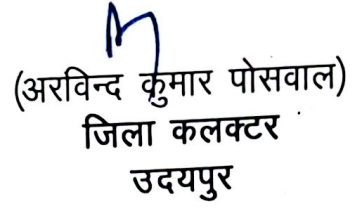 (अरविन्द कुमार पोसवाल)
जिला कलक्टर
उदयपुर